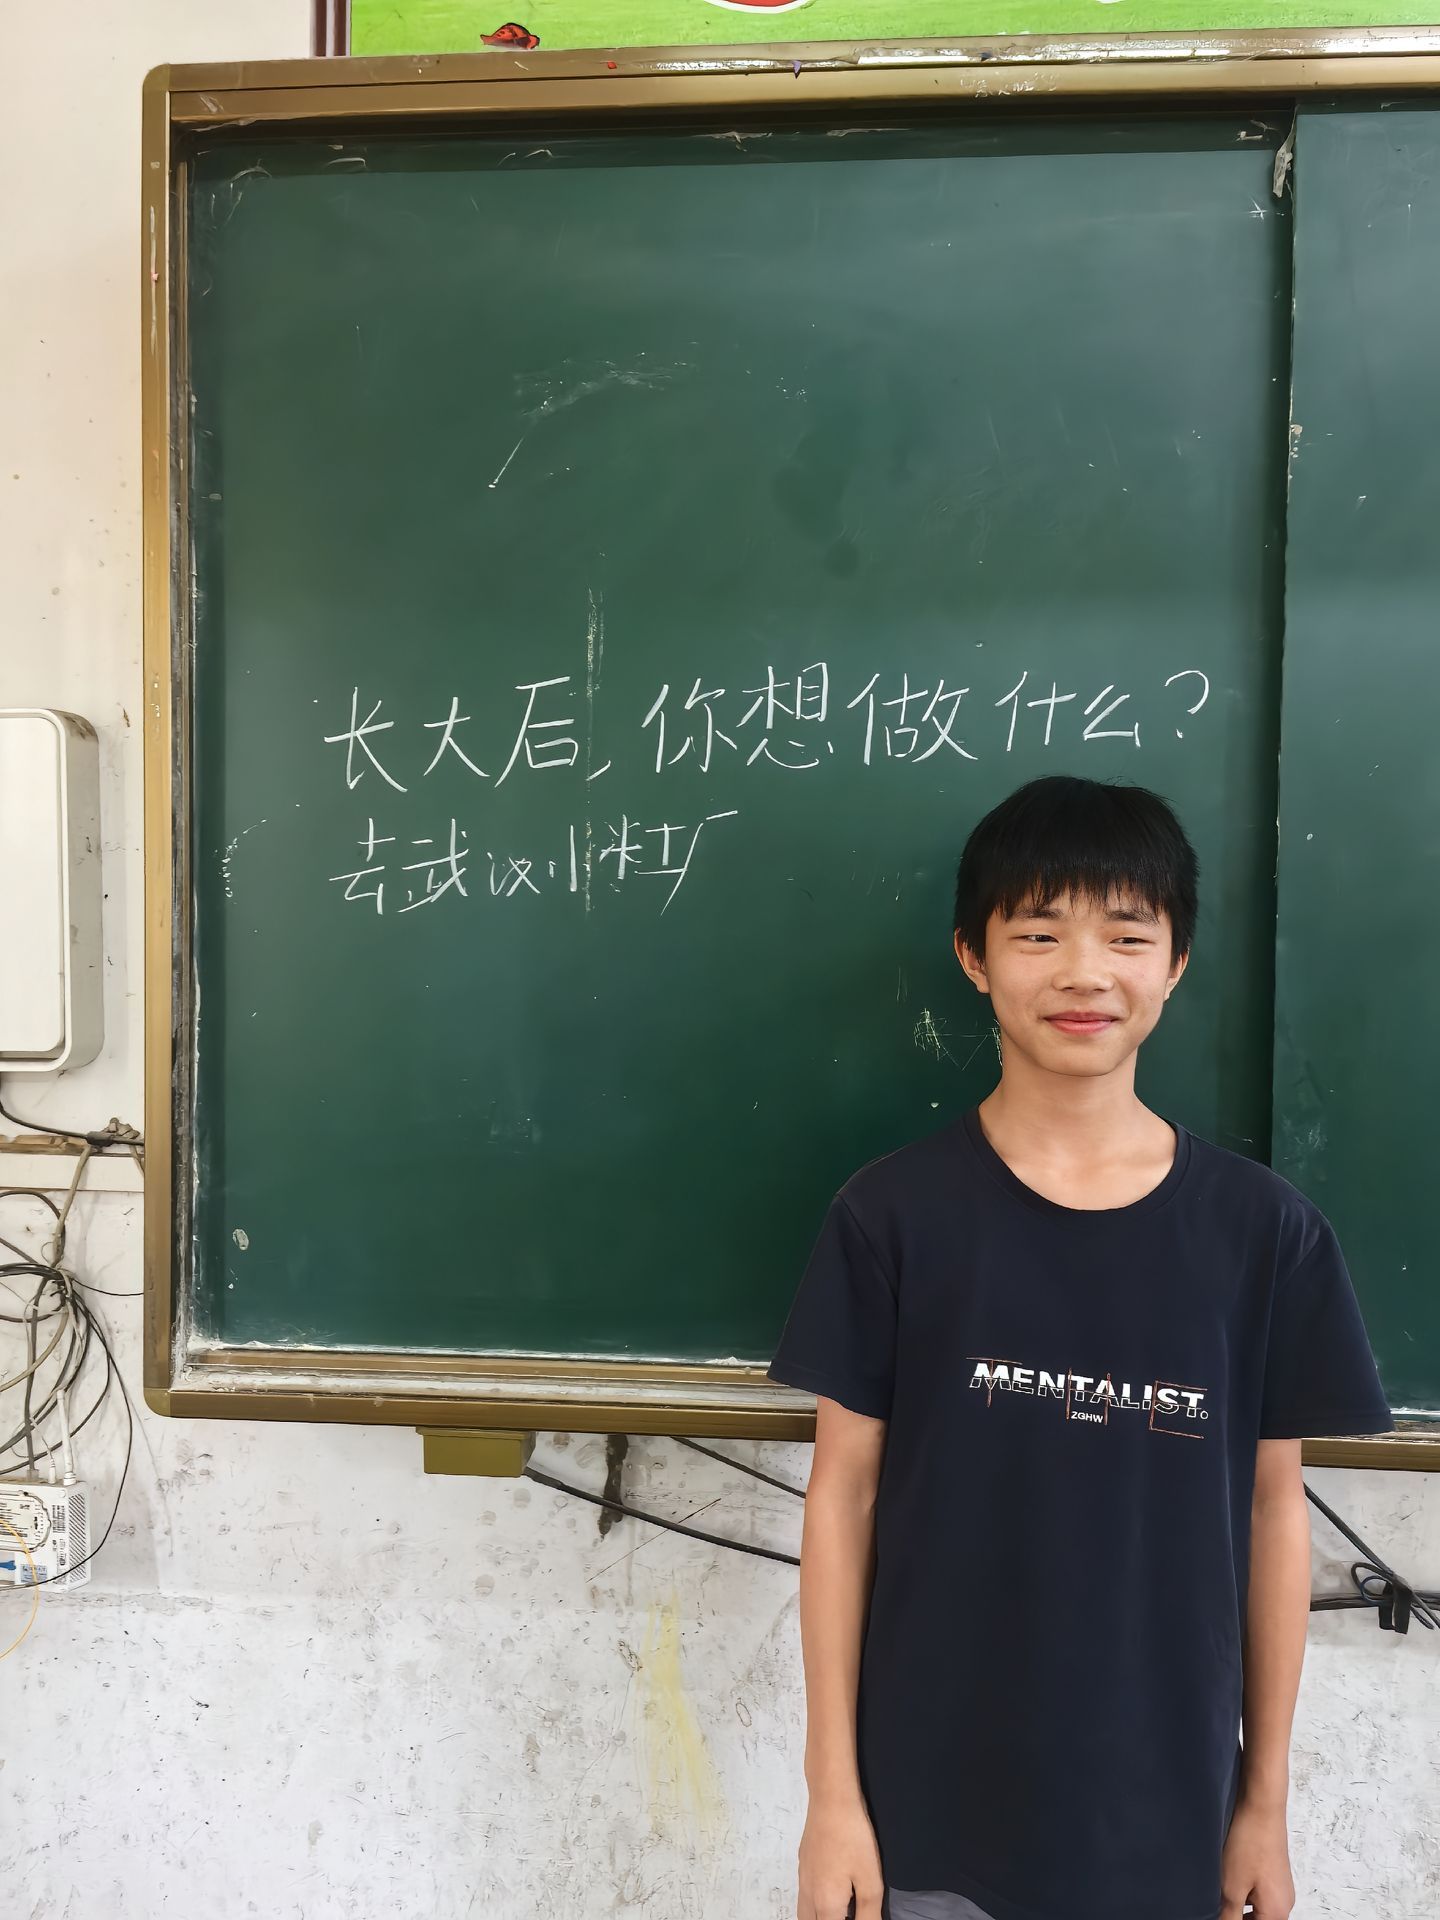 长大后,你想做什么?
去武汉小米工厂
MENTALIST.
ZGHW